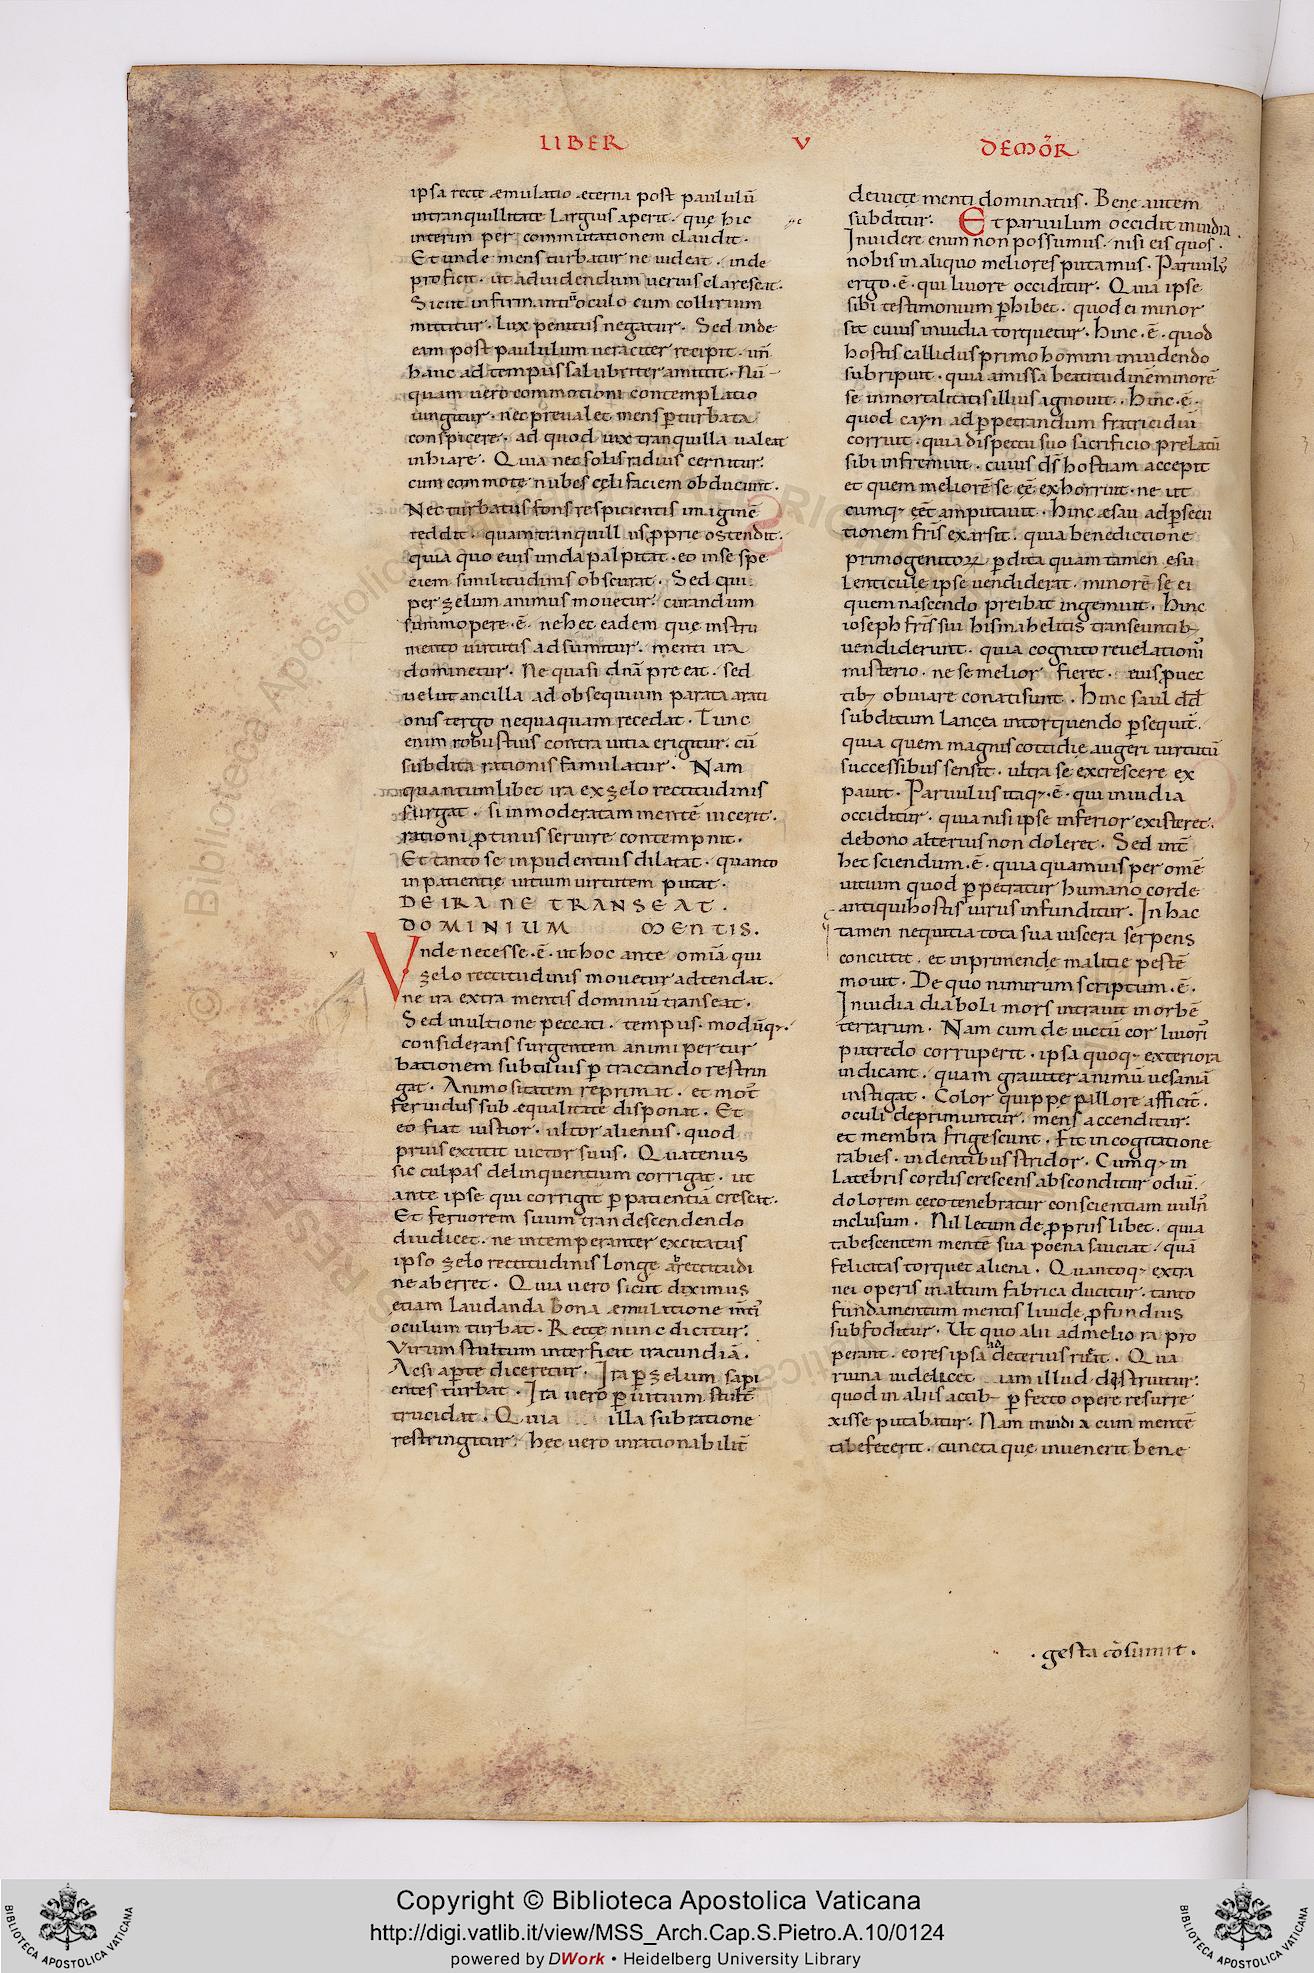 LIBER V DEMOR̃
ipsa recte æmulatio æterna post paululũ
intranquillitate Largius aperit. quę hic
interim per commutationem claudit.
Et unde mens turbatur ne uideat. inde
proficit. ut aduidendum uerius clarescat.
Sicut infirmanti oculo cum collirium
mittitur. Lux penitus negatur. Sed inde
eam post paululum ueraciter recipit. un̄
hanc ad tempus salubriter amittit. Nũ
quam uero commotioni contemplatio
iungitur. nec preualet mens ꝑturbata
conspicere. ad quod uix tranquilla ualeat
inhiare. Quia nec solis radius cernitur.
cum commote nubes cęli faciem obducunt.
Nec turbatus fons respicientis imaginẽ
reddit. quam tranquillus ꝓprie ostendit.
quia quo eius unda palpitat. eo inse spe
ciem similitudinis obscurat. Sed qui
per zelum animus mouetur. curandum
summopere .ē. ne hec eadem que instru
mento uirtutis adsumitur. menti ira
dominetur. Ne quasi dnã preeat. sed
uelut ancilla ad obsequium parata arati
onis tergo nequaquam recedat. Tunc
enim robustius contra uitia erigitur. cũ
subdita rationis famulatur. Nam
quantumlibet ira ex zelo rectitudinis
surgat. si inmoderatam mentẽ uicerit.
rationi ꝓtinus seruire contempnit.
Et tanto se inpudentius dilatat. quanto
inpatientię uitium uirtutem putat.
DE IRA NE TRANSEAT.
DOMINIUM MENTIS.
Vnde necesse .ē. ut hoc ante omĩa qui
zelo rectitudinis mouetur adtendat.
ne ira extra mentis dominiũ transeat.
Sed inultione peccati. tempus. modũqꝫ.
considerans surgentem animi pertur
bationem subtilius ꝑtractando restrin
gat. Animositatem reprimat. et mot᷒
feruidus sub æqualitate disponat. Et
eo fiat iustior. ultor alienus. quod
prius extitit uictor suus. Quatenus
sic culpas delinquentium corrigat. ut
ante ipse qui corrigit ꝑ patientiã crescat.
Et feruorem suum trandescendendo
diudicet. ne intemperanter excitatus
ipso zelo rectitudinis Longe a rectitudi
ne aberret. Quia uero sicut diximus
etiam laudanda bona æmulatione
oculum turbat. Recte nunc dicitur.
Virum stultum interficit iracundiã.
Ac si aꝑte diceretur. Ira ꝑ zelum sapi
entes turbat. Ira uero ꝑ uitium stult᷒
trucidat. Quia illa sub ratione
restringitur. hęc uero inrationabilit̃
deuictę menti dominatus. Bene autem
subditur. Et paruulum occidit inuidia.
Inuidere enim non possumus. nisi eis quos
nobis in aliquo meliores putamus. Paruul᷒
ergo .ē. qui liuore occiditur. Quia ipse
sibi testimonium ꝑhibet. quod ei minor
sit cuius inuidia torquetur. hinc .ē. quod
hostis callidus primo homini inuidendo
subripuit. quia amissa beatitudinẽ minorẽ
se inmortalitatis illius agnouit. hinc .ē.
quod cayn ad ꝑpetrandum fratricidiũ
corruit. quia dispectu suo sacrificio prelatũ
sibi infremuit. cuius ds̃ hostiam accepit
et quem meliorẽ se eẽ exhorruit. ne ut
cumqꝫ eẽt amputauit. hinc æsau ad ꝑsecu
tionem fris̃ exarsit. quia benedictione
primogenitoꝝ ꝑdita quam tamen esu
lenticulę ipse uendiderat. minorẽ se ei
quem nascendo preibat ingemuit. hinc
ioseph fris̃ sui hismahelitis transeuntibꝫ
uendiderunt. quia cognito reuelationis
misterio. ne se melior fieret. eius ꝓuec
tibꝫ obuiare conati sunt. hinc saul dd̃
subditum lancea intorquendo ꝑsequit̃.
quia quem magnis cottidie augeri uirtutũ
successibus sensit. ultra se excrescere ex
pauit. Paruulus itaqꝫ .ē. qui inuidia
occiditur. quia nisi ipse inferior existeret.
de bono alterius non doleret. Sed int̃
hec sciendum .ē. quia quamuis per omẽ
uitium quod ꝑpetratur humano corde
antiqui hostis uirus infunditur. In hac
tamen nequitia tota sua uiscera serpens
concutit. et inprimende malitie pestẽ
mouit. De quo nimirum scriptum .ē.
Inuidia diaboli mors intrauit in orbẽ
terrarum. Nam cum deuictũ cor liuoris
putredo corruperit. ipsa quoqꝫ exteriora
indicant. quam grauiter animũ uesania
instigat. Color quippe pallore afficit̃.
oculi deprimuntur. mens accenditur.
et membra frigescunt. Fit in cogitatione
rabies. in dentibus stridor. Cumqꝫ in
latebris cordis crescens absconditur odiũ.
dolorem ceco tenebratur conscientiam uuln̄
inclusum. Nil letum de ꝓpriis libet. quia
tabescentem mentẽ sua poena sauciat. quã
felicitas torquet aliena. Quantoqꝫ extra
nei operis in altum fabrica ducitur. tanto
fundamentum mentis liuide ꝓfundius
subfoditur. Ut quo alii ad meliora pro
perant. eo res ipsa ad deterius ruat. Qua
ruina uidelicet iam illud destruitur.
quod in aliis actibꝫ ꝑfecto opere resurre
xisse putabatur. Nam inuidia cum mentẽ
tabefecerit. cuncta quę inuenerit bene
. gesta cõsumit.
Copyright © Biblioteca Apostolica Vaticana
http://digi.vatlib.it/view/MSS_Arch.Cap.S.Pietro.A.10/0124
powered by DWork • Heidelberg University Library
BIBLIOTECA APOSTOLICA VATICANA
BIBLIOTECA APOSTOLICA VATICANA